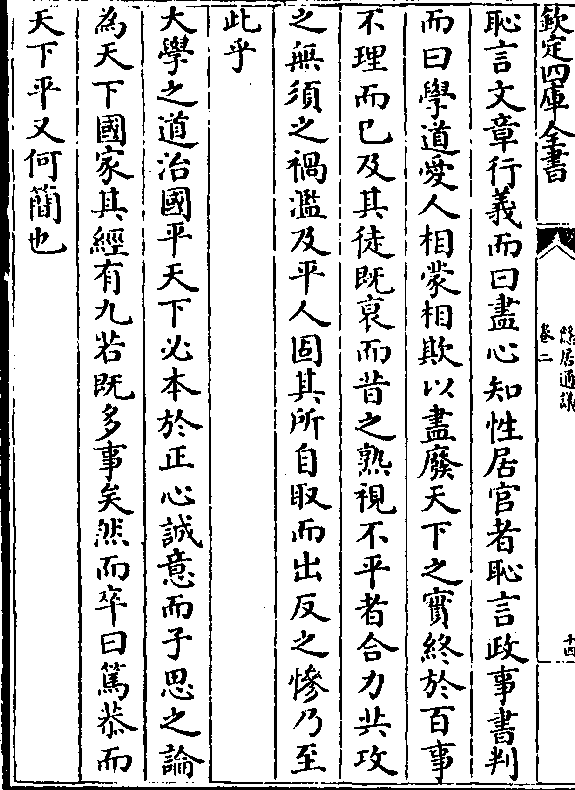 欽定四庫全書
隱居通議
卷二
十四
恥言文章行義而曰盡心知性居官者恥言政事書判
而曰學道愛人相蒙相欺以盡廢天下之實終於百事
不理而已及其徒既衰而昔之熟視不平者合力共攻
之無須之禍濫及平人固其所自取而出反之慘乃至
此乎
大學之道治國平天下必本於正心誠意而子思之論
為天下國家其經有九若既多事矣然而卒曰篤恭而
天下平又何簡也